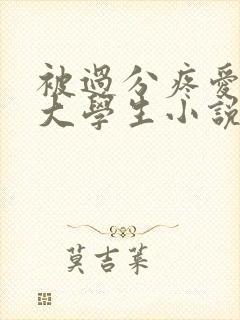 被過分疼愛
大學生小說
莫吉萊